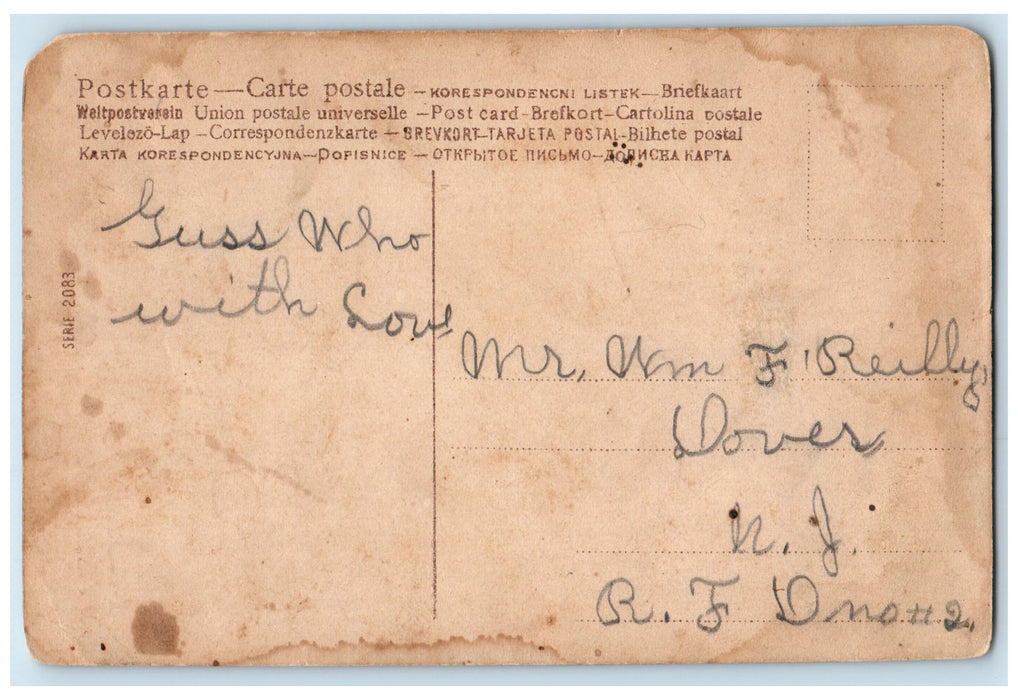 Postkarte — Carte postale – KORESPONDENCNI LISTEK — Briefkaart
Weltpostverein Union postale universelle – Post card - Brefkort - Cartolina postale
Levelezö-Lap – Correspondenzkarte – BREVKORT – TARJETA POSTAL - Bilhete postal
KARTA KORESPONDENCYJNA – DOPISNICE – ОТКРЫТОЕ ПИСЬМО – ДОПИСНА КАРТА
Guss Who
with Love
SERIE 2083
Mr. Wm F Reilly
Dover
N. J.
R. F D no #2.